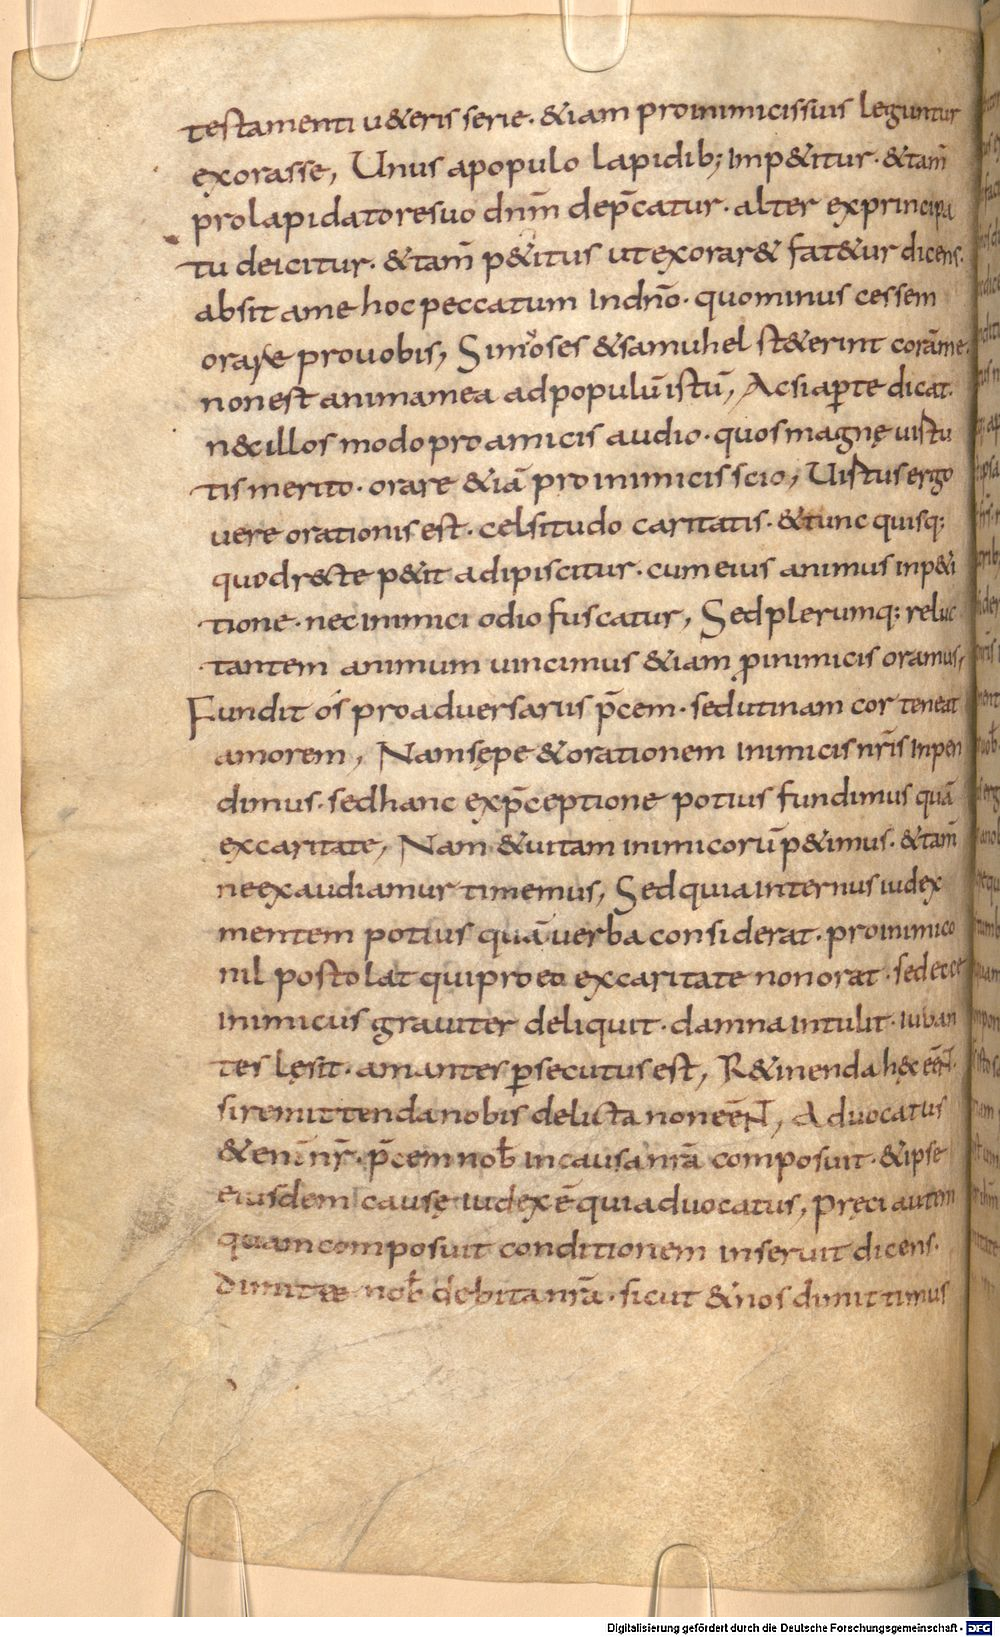 testamenti u&eris serie. &iam proinimicis suis leguntur
exorasse, Unus apopulo lapidib; imp&itur. &tam̄
prolapidatoresuo dnm̄ dep̄catur. alter exprincipa
tu deicitur. &tam̄ p&itus ut exorar& fat&ur dicens.
absit ame hoc peccatum in dnō. quominus cessem
orare prouobis, Si moses &samuhel st&erint corāme.
nonest animamea adpopulūistū, Acsi aperte dicat.
n&cillos modo proamicis audio. quos magnę uirtu
tis merito. orare &iā proinimicis scio, Uirtus ergo
uere orationis est. celsitudo caritatis. &tunc quisq;
quod r&cte p&it adipiscitur. cum eius animus inp&i
tione. nec inimici odio fuscatur, Sed plerumq; reluc
tantem animum uincimus &iam ꝓinimicis oramus,
Fundit os proaduersariis p̄cem. sed utinam cor teneat
amorem, Nam sępe &orationem inimicis nr̄is inpen
dimus. sed hanc exp̄ceptione potius fundimus quā
excaritate, Nam &uitam inimicorū p&imus. &tam̄
ne exaudiamur timemus, Sed quia internus iudex
mentem potius quā uerba considerat. proinimico
nil postolat quiproeo excaritate non orat. sed ecce
inimicus grauiter deliquit. damna intulit. iuban
tes lęsit. amantes ꝑsecutus est, R&inenda hęc eēnt.
si remittenda nobis delicta non eēnt, Aduocatus
&enī nr̄. p̄cem nob̄ incausa nr̄ā composuit. &ipse
eiusdem causę iudex ē quiaduocatus, Pręci autem
quam composuit conditionem inseruit dicens.
dimitte nob̄ debita nr̄ā. sicut &nos dimittimus
Digitalisierung gefördert durch die Deutsche Forschungsgemeinschaft - DFG